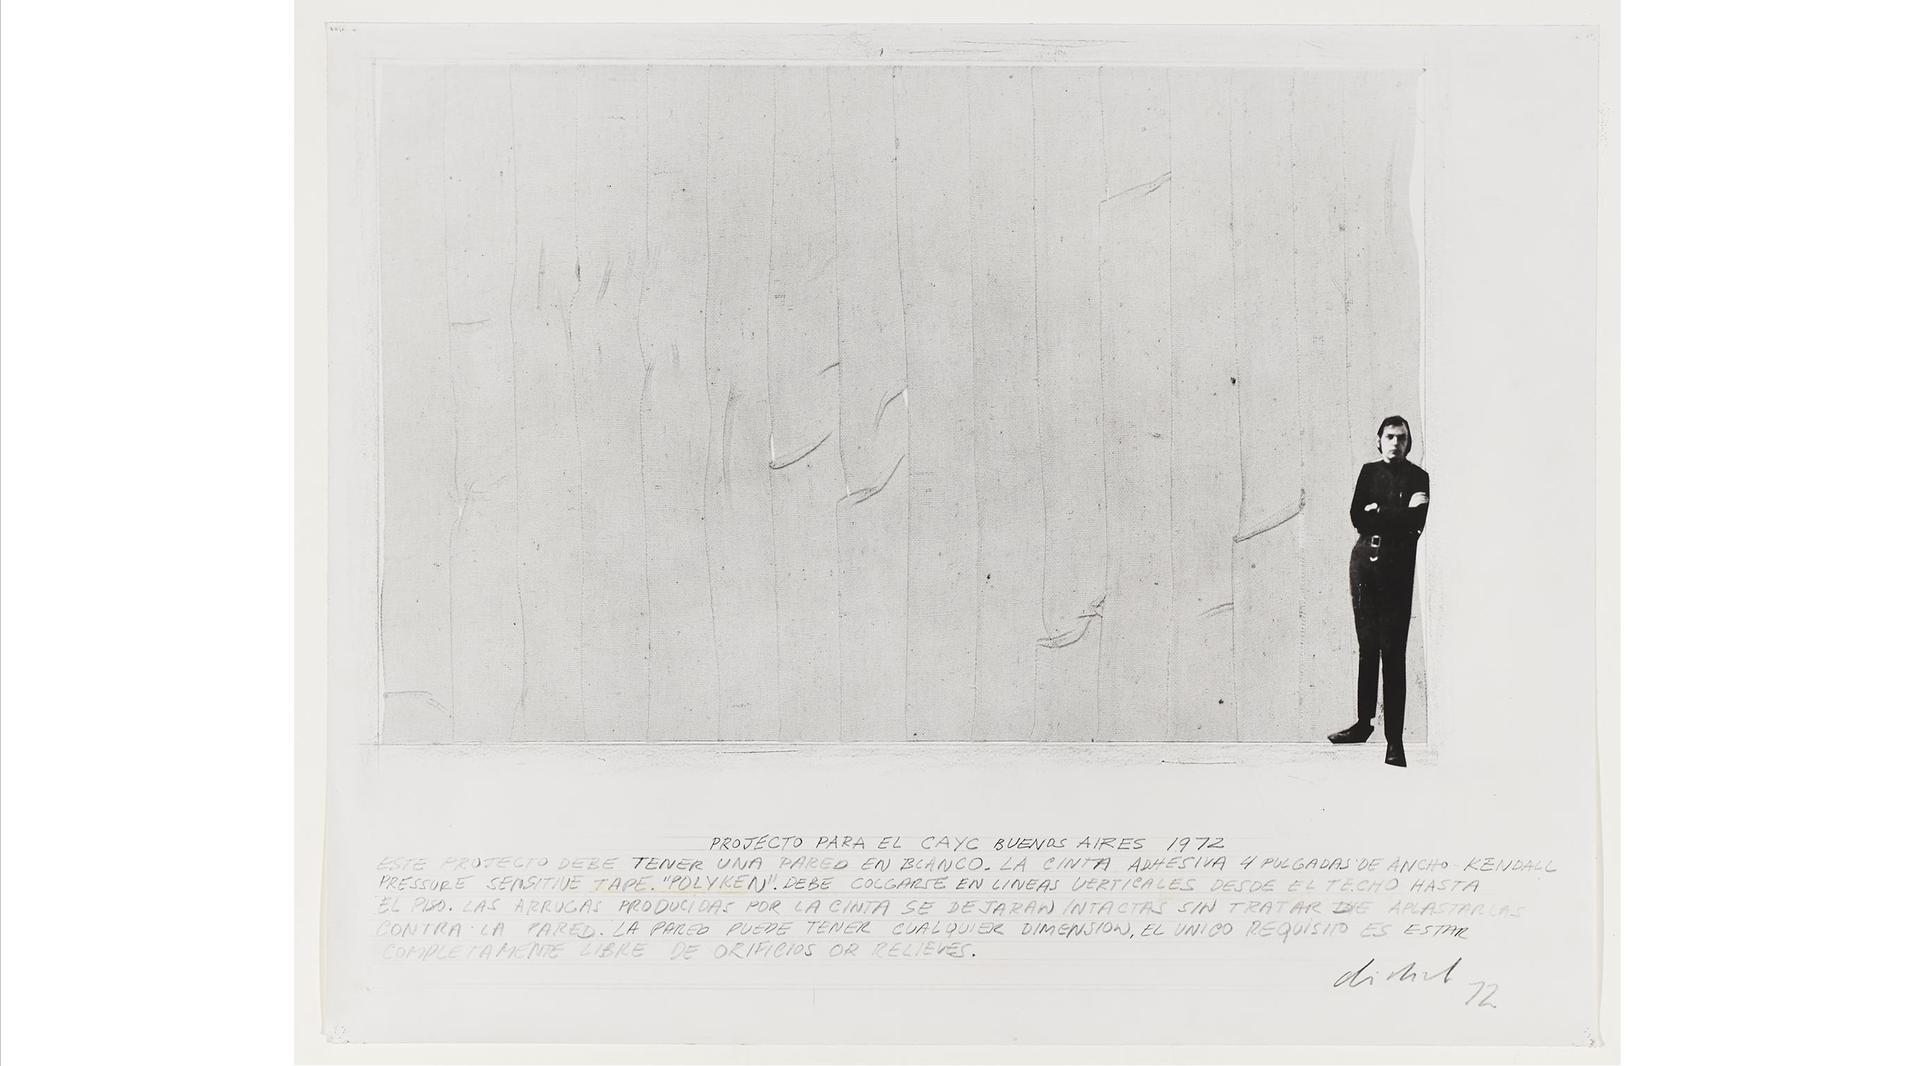 PROJECTO PARA EL CAYC BUENOS AIRES 1972
ESTE PROJECTO DEBE TENER UNA PARED EN BLANCO. LA CINTA ADHESIVA 4 PULGADAS DE ANCHO - KENDALL
PRESSURE SENSITIVE TAPE. "POLYKEN". DEBE COLGARSE EN LINEAS VERTICALES DESDE EL TECHO HASTA
EL PISO. LAS ARRUGAS PRODUCIDAS POR LA CINTA SE DEJARAN INTACTAS SIN TRATAR DE APLASTARLAS
CONTRA LA PARED. LA PARED PUEDE TENER CUALQUIER DIMENSION, EL UNICO REQUISITO ES ESTAR
COMPLETAMENTE LIBRE DE ORIFICIOS OR RELIEVES.
72